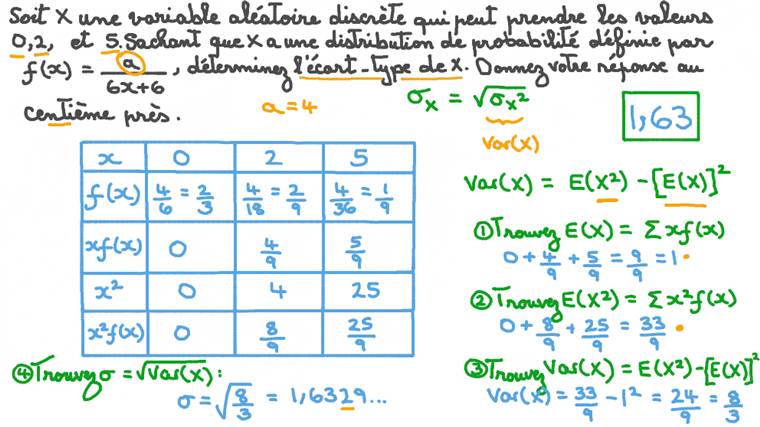 Soit X une variable aléatoire discrète qui peut prendre les valeurs
0, 2, et 5. Sachant que X a une distribution de probabilité définie par
f(x) = a/(6x+6), déterminez l'écart-type de X. Donnez votre réponse au
centième près.
a = 4
σ_X = √σ_X²
Var(X)
1,63
x 0 2 5
f(x) 4/6 = 2/3 4/18 = 2/9 4/36 = 1/9
xf(x) 0 4/9 5/9
x² 0 4 25
x²f(x) 0 8/9 25/9
Var(X) = E(X²) - [E(X)]²
① Trouvez E(X) = Σxf(x)
0 + 4/9 + 5/9 = 9/9 = 1
② Trouvez E(X²) = Σx²f(x)
0 + 8/9 + 25/9 = 33/9
③ Trouvez Var(X) = E(X²) - [E(X)]²
Var(X) = 33/9 - 1² = 24/9 = 8/3
④ Trouvez σ = √Var(X) :
σ = √8/3 = 1,6329...